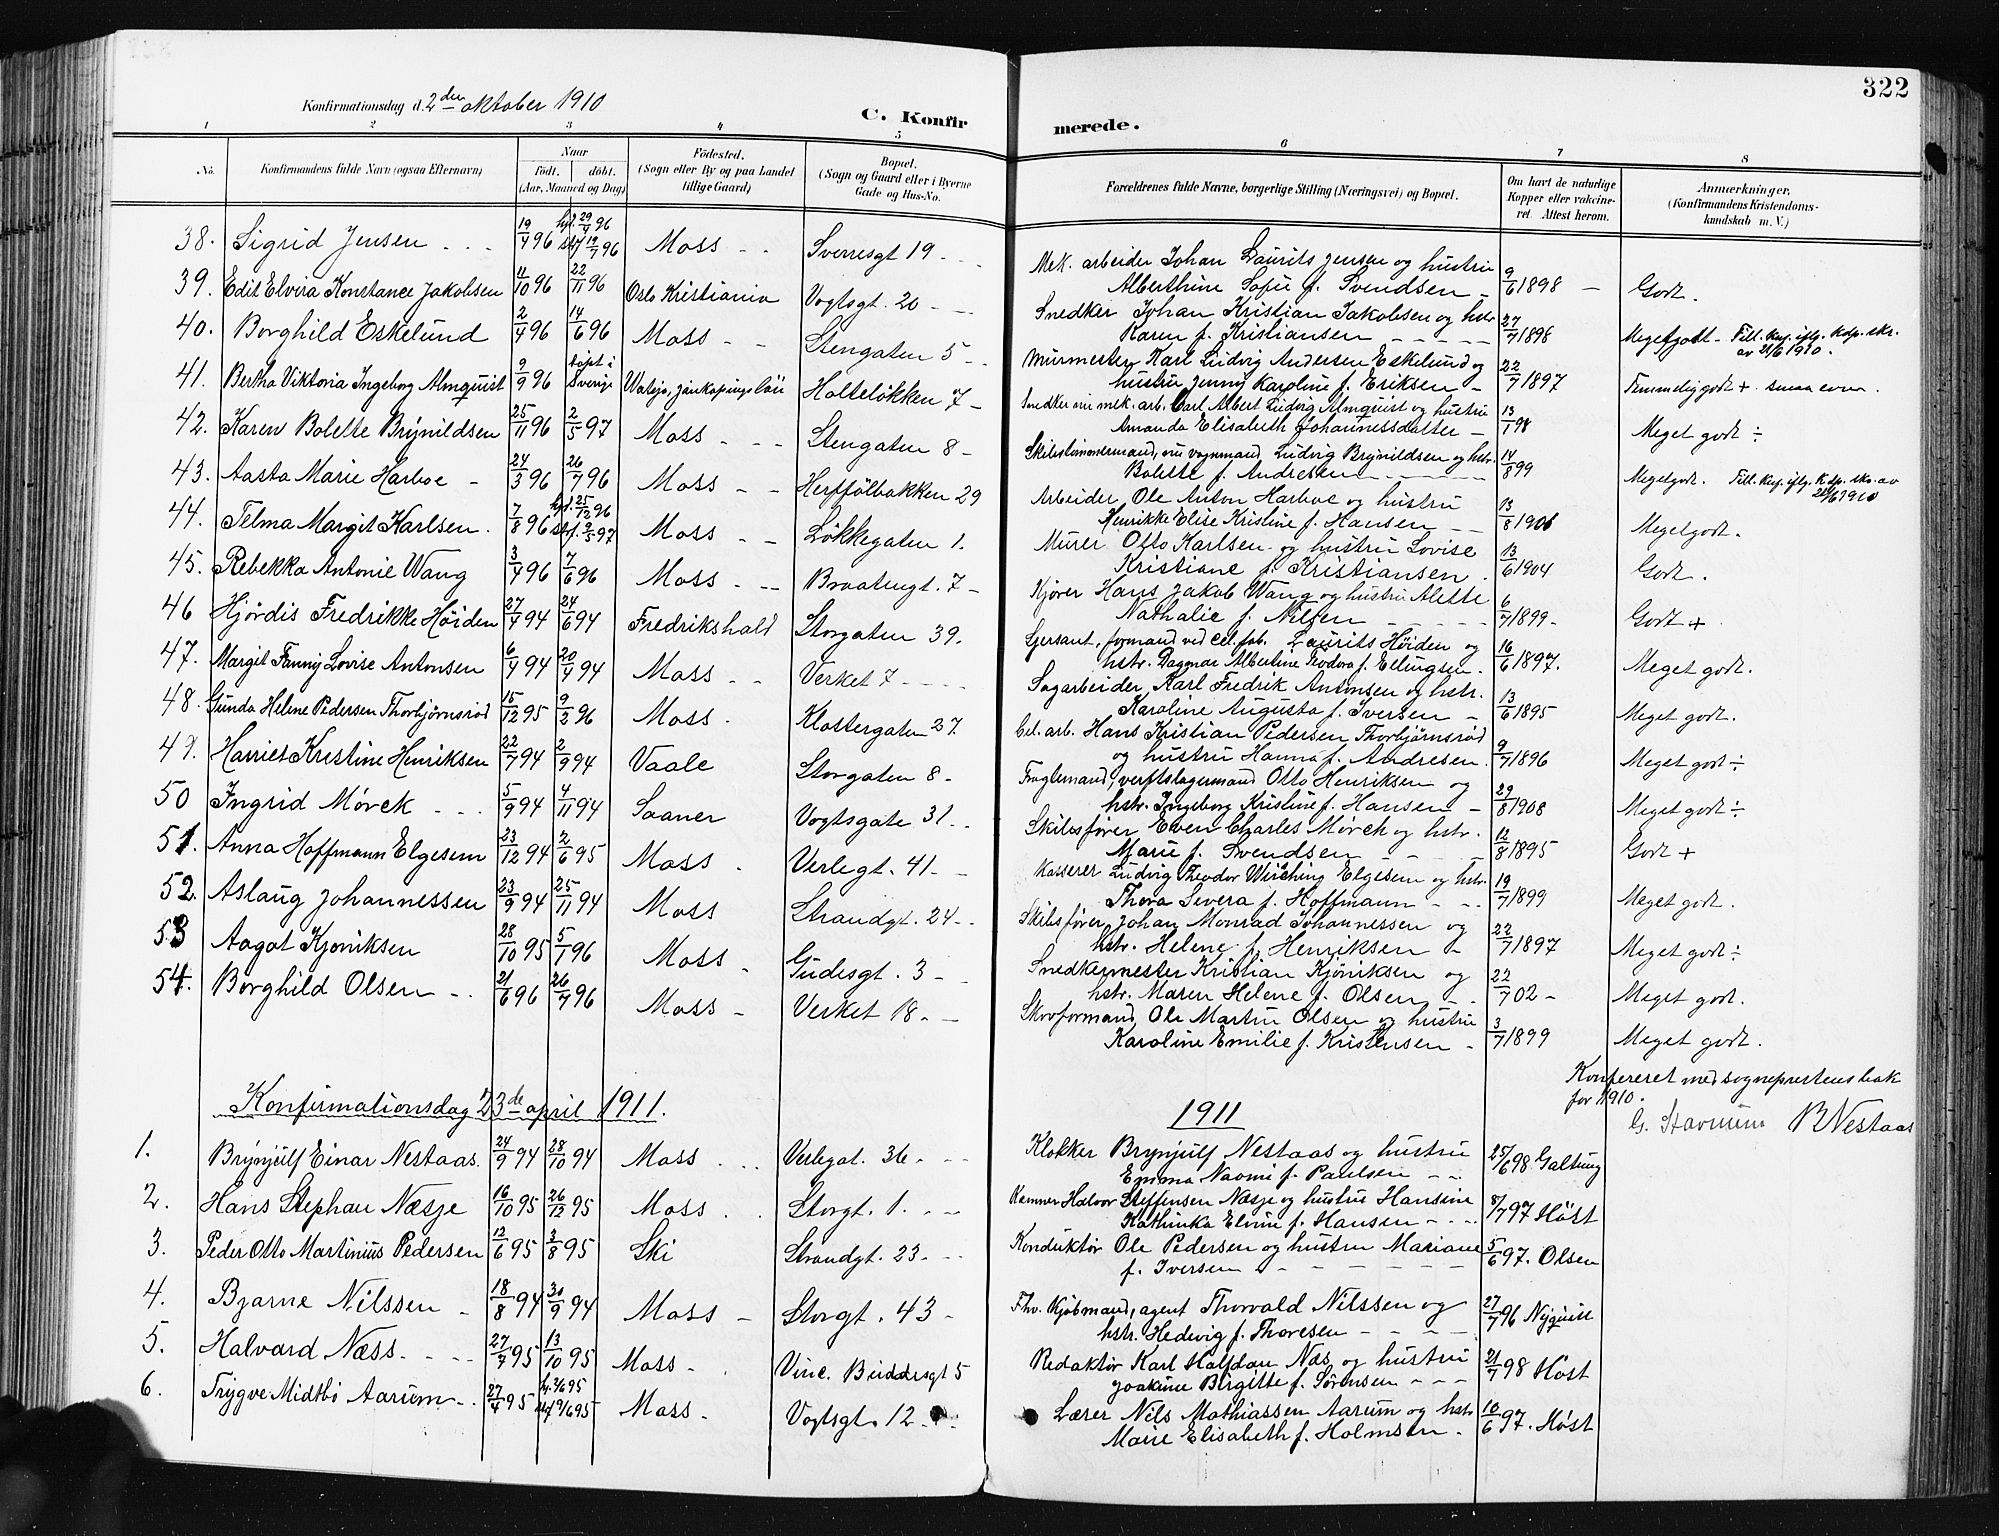 322
Konfirmationsdag d. 2den oktober 1910
C. Konfir
merede.
1 2 3 4 5 6 7 8
No.
Konfirmandens fulde Navn (ogsaa Efternavn)
Naar
födt. döbt.
(Aar, Maaned og Dag)
Födested.
(Sogn eller By og paa Landet
tillige Gaard)
Bopæl.
(Sogn og Gaard eller i Byerne
Gade og Hus-No.
Forældrenes fulde Navne, borgerlige Stilling (Næringsvei) og Bopæl.
Om havt de naturlige
Kopper eller vakcine-
ret. Attest herom.
Anmærkninger.
(Konfirmandens Kristendoms-
kundskab m. V.)
38. Sigrid Jensen 19/4 96 hjf. 29/4 96 Moss Sverresgt 19
stf. 19/7 96
Mek. arbeider Johan Laurits Jensen og hustru
Alberthine Sofie f. Svendsen 9/6 1898 Godt.
39. Edit Elvira Konstance Jakobsen 11/10 96 22/11 96 Oslo Kristiania Vogtsgt. 20
Snedker Johan Kristian Jakobsen og hstr
Karen f. Kristiansen 27/7 1898 Megetgodt Till. Kej. iflg. Kdp. skr.
av 21/6 1910.
40. Borghild Eskelund 2/4 96 14/6 96 Moss Stengaten 5
Murmester Karl Ludvig Andersen Eskelund og
hustru Jenny Karoline f. Eriksen 22/7 1897 Temmelig godt + smaa evner.
41. Bertha Viktoria Ingeborg Almquist 9/9 96 døpt i
Sverige Jönköpings län Holteløkken 7
Snedker nu mek. arb. Carl Albert Ludvig Almquist og hustru
Amanda Elisabeth Johannessdatter 13/1 98 Meget godt ÷
42. Karen Bolette Brynildsen 25/11 96 2/5 97 Moss Stengaten 8
nu vognmand Ludvig Brynildsen og hstr.
Bolette f. Andresen 14/8 99 Megetgodt. Till. Kej. iflg. Kdp. skr. av
21/6 1910
43. Aasta Marie Harboe 24/3 96 26/7 96 Moss Herfføbakken 29
Arbeider Ole Anton Harboe og hustru
Henrikke Elise Kristine f. Hansen 13/8 1906 Megetgodt.
44. Telma Margit Karlsen 7/8 96 hjf. 25/12 96
stf. 2/5 97 Moss Løkkegaten 1.
Murer Otto Karlsen og hustru Lovise
Kristiane f. Kristiansen. 13/6 1904 Godt.
45. Rebekka Antonie Wang 3/4 96 7/6 96 Moss Braatengt. 7
Kjører Hans Jakob Wang og hustru Alette
Nathalie f. Nilsen 6/7 1899. Godt +
46 Hjördis Fredrikke Höiden 27/4 94 24/6 94 Fredrikshald Storgaten 39.
Sersant, formand ved Cel. fab. Laurits Höiden og
hstr. Dagmar Albertine Teodora f. Ellingsen. 16/6 1897. Meget godt.
47. Margit Fanny Lovise Antonsen 6/4 94 20/4 94 Moss Verket 7
Sagarbeider Karl Fredrik Antonsen og hstr.
Karoline Augusta f. Iversen 13/6 1895 Meget godt.
48. Gunda Helene Pedersen Thorbjørnsrød 15/12 95 9/2 96 Moss. Klostergaten 37.
Cel. arb. Hans Kristian Pedersen Thorbjørnsrød
og hustru Hanna f. Andresen. 9/7 1896 Meget godt ÷
49. Harriet Kristine Henriksen 22/7 94 2/9 94 Vaale Storgaten 8
verftslagermand Otto Henriksen og
hstr. Ingeborg Kristine f. Hansen 29/8 1908 Meget godt ÷
50 Ingrid Mörck 5/9 94 4/11 94 Saaner Vogtsgate 31
Skibsfører Even Charles Mörch og hstr.
Marie f. Svendsen 12/8 1895 Godt +
51. Anna Hoffmann Elgesem 23/12 94 2/6 95 Moss Verlegt. 41
Kasserer Ludvig Theodor Wirching Elgesem og hstr.
Thora Severa f. Hoffmann 19/7 1899 Meget godt.
52. Aslaug Johannessen 23/9 94 25/11 94 Moss Strandgt. 24
Skibsfører Johan Monrad Johannessen og
hstr. Helene f. Henriksen 22/7 1897 Meget godt ÷
53 Aagot Kjøniksen 28/10 95 5/1 96 Moss Gudesgt. 3
Snedkermester Kristian Kjøniksen og
hstr. Maren Helene f. Olsen 22/7 02 Meget godt.
54. Borghild Olsen 21/6 96 26/7 96 Moss Verket 18
Skovformand Ole Martin Olsen og hustru
Karoline Emilie f. Kristensen 3/7 1899 Meget godt.
Konfereret med sogneprestens bok
for 1910.
G. Stavnum B Nestaas
Konfirmationsdag 23de april 1911.
1911
1. Brynjulf Einar Nestaas. 24/9 94 28/10 94 Moss Verlegat. 36
Klokker Brynjulf Nestaas og hustru
Emma Naomi f. Paulsen 25/6 98 Galtung
2. Hans Stephan Næsje 16/10 95 26/12 95 Moss Storgt. 1.
Kemner Halvor Steffensen Næsje og hustru Hansine
Kathinka Elvine f. Hansen 8/7 97 Høst
3. Peder Otto Martinius Pedersen 12/6 95 3/8 95 Ski Strandgt. 23
Konduktør Ole Pedersen og hustru Mariane
f. Iversen 5/6 97. Olsen
4. Bjarne Nilssen 18/8 94 30/9 94 Moss Storgt. 43
Fhv. Kjøbmand, agent Thorvald Nilssen og
hstr. Hedevig f. Thoresen 27/7 96 Nyquist
5. Halvard Næss. 27/7 95 13/10 95 Moss Vinc. Buddesgt 5
Redaktør Karl Halfdan Næs og hustru
Joakine Birgitte f. Sørensen 21/7 98 Høst
6. Trygve Midtbö Aarum 27/4 95 hj. 2/6 95
stf 9/6 95 Moss Vogtsgt. 12
Lærer Nils Mathiassen Aarum og hstr
Marie Elisabeth f. Holmsen. 10/6 97. Høst